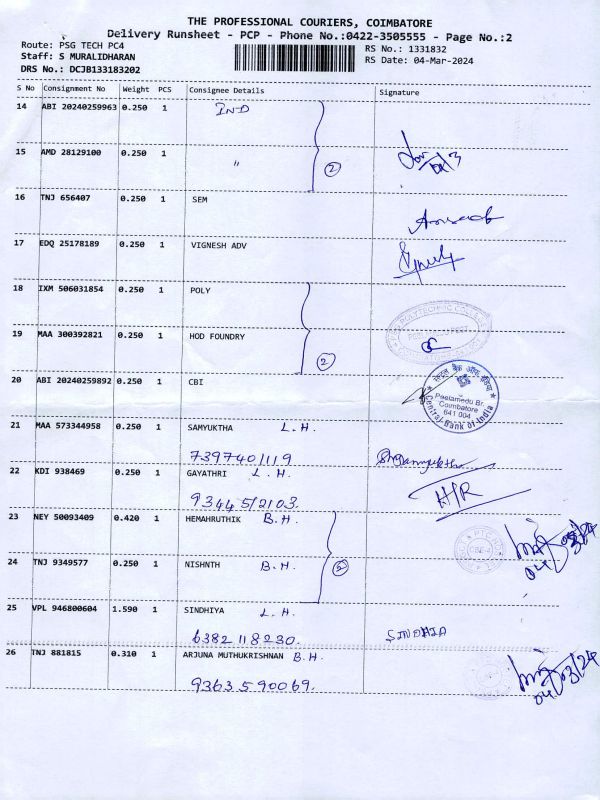 THE PROFESSIONAL COURIERS, COIMBATORE
Delivery Runsheet - PCP - Phone No.:0422-3505555 - Page No.:2
Route: PSG TECH PC4
Staff: S MURALIDHARAN
DRS No.: DCJB133183202
RS No.: 1331832
RS Date: 04-Mar-2024
S No Consignment No Weight PCS Consignee Details Signature
14 ABI 20240259963 0.250 1 IND
15 AMD 28129100 0.250 1 "
2
16 TNJ 656407 0.250 1 SEM
17 EDQ 25178189 0.250 1 VIGNESH ADV
18 IXM 506031854 0.250 1 POLY
POLYTECHNIC COLLEGE
19 MAA 300392821 0.250 1 HOD FOUNDRY
2
20 ABI 20240259892 0.250 1 CBI
सेन्ट्रल बैंक ऑफ इंडिया
Peelamedu Br.
Coimbatore
641 004
Central Bank of India
21 MAA 573344958 0.250 1 SAMYUKTHA L.H.
7397401119
22 KDI 938469 0.250 1 GAYATHRI L.H.
9344512103.
H/R
23 NEY 50093409 0.420 1 HEMAHRUTHIK B.H.
24 TNJ 9349577 0.250 1 NISHNTH B.H.
04/03/24
25 VPL 946800604 1.590 1 SINDHIYA L.H.
6382118230.
SINDHIA
26 TNJ 881815 0.310 1 ARJUNA MUTHUKRISHNAN B.H.
9363590069.
04/03/24